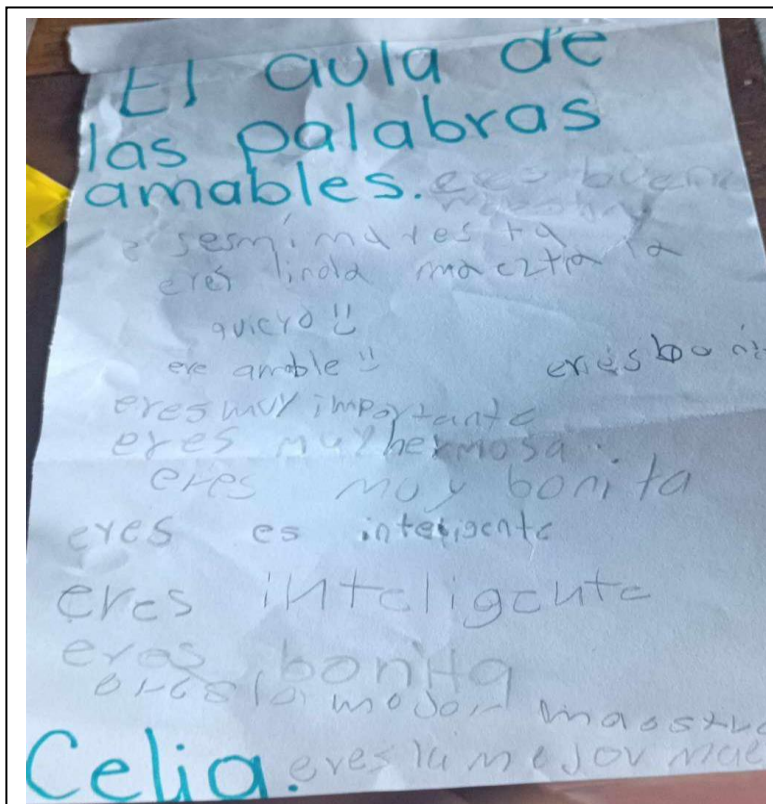 El aula de
las palabras
amables. eres buena
eres linda maeztra la
quiero
ere amable
eres boni
eres muy importante
eres muy hermosa.
eres muy bonita
eres es inteligente
eres inteligente
eres bonita
eres la mejor maestra
Celia. eres la mejor mae